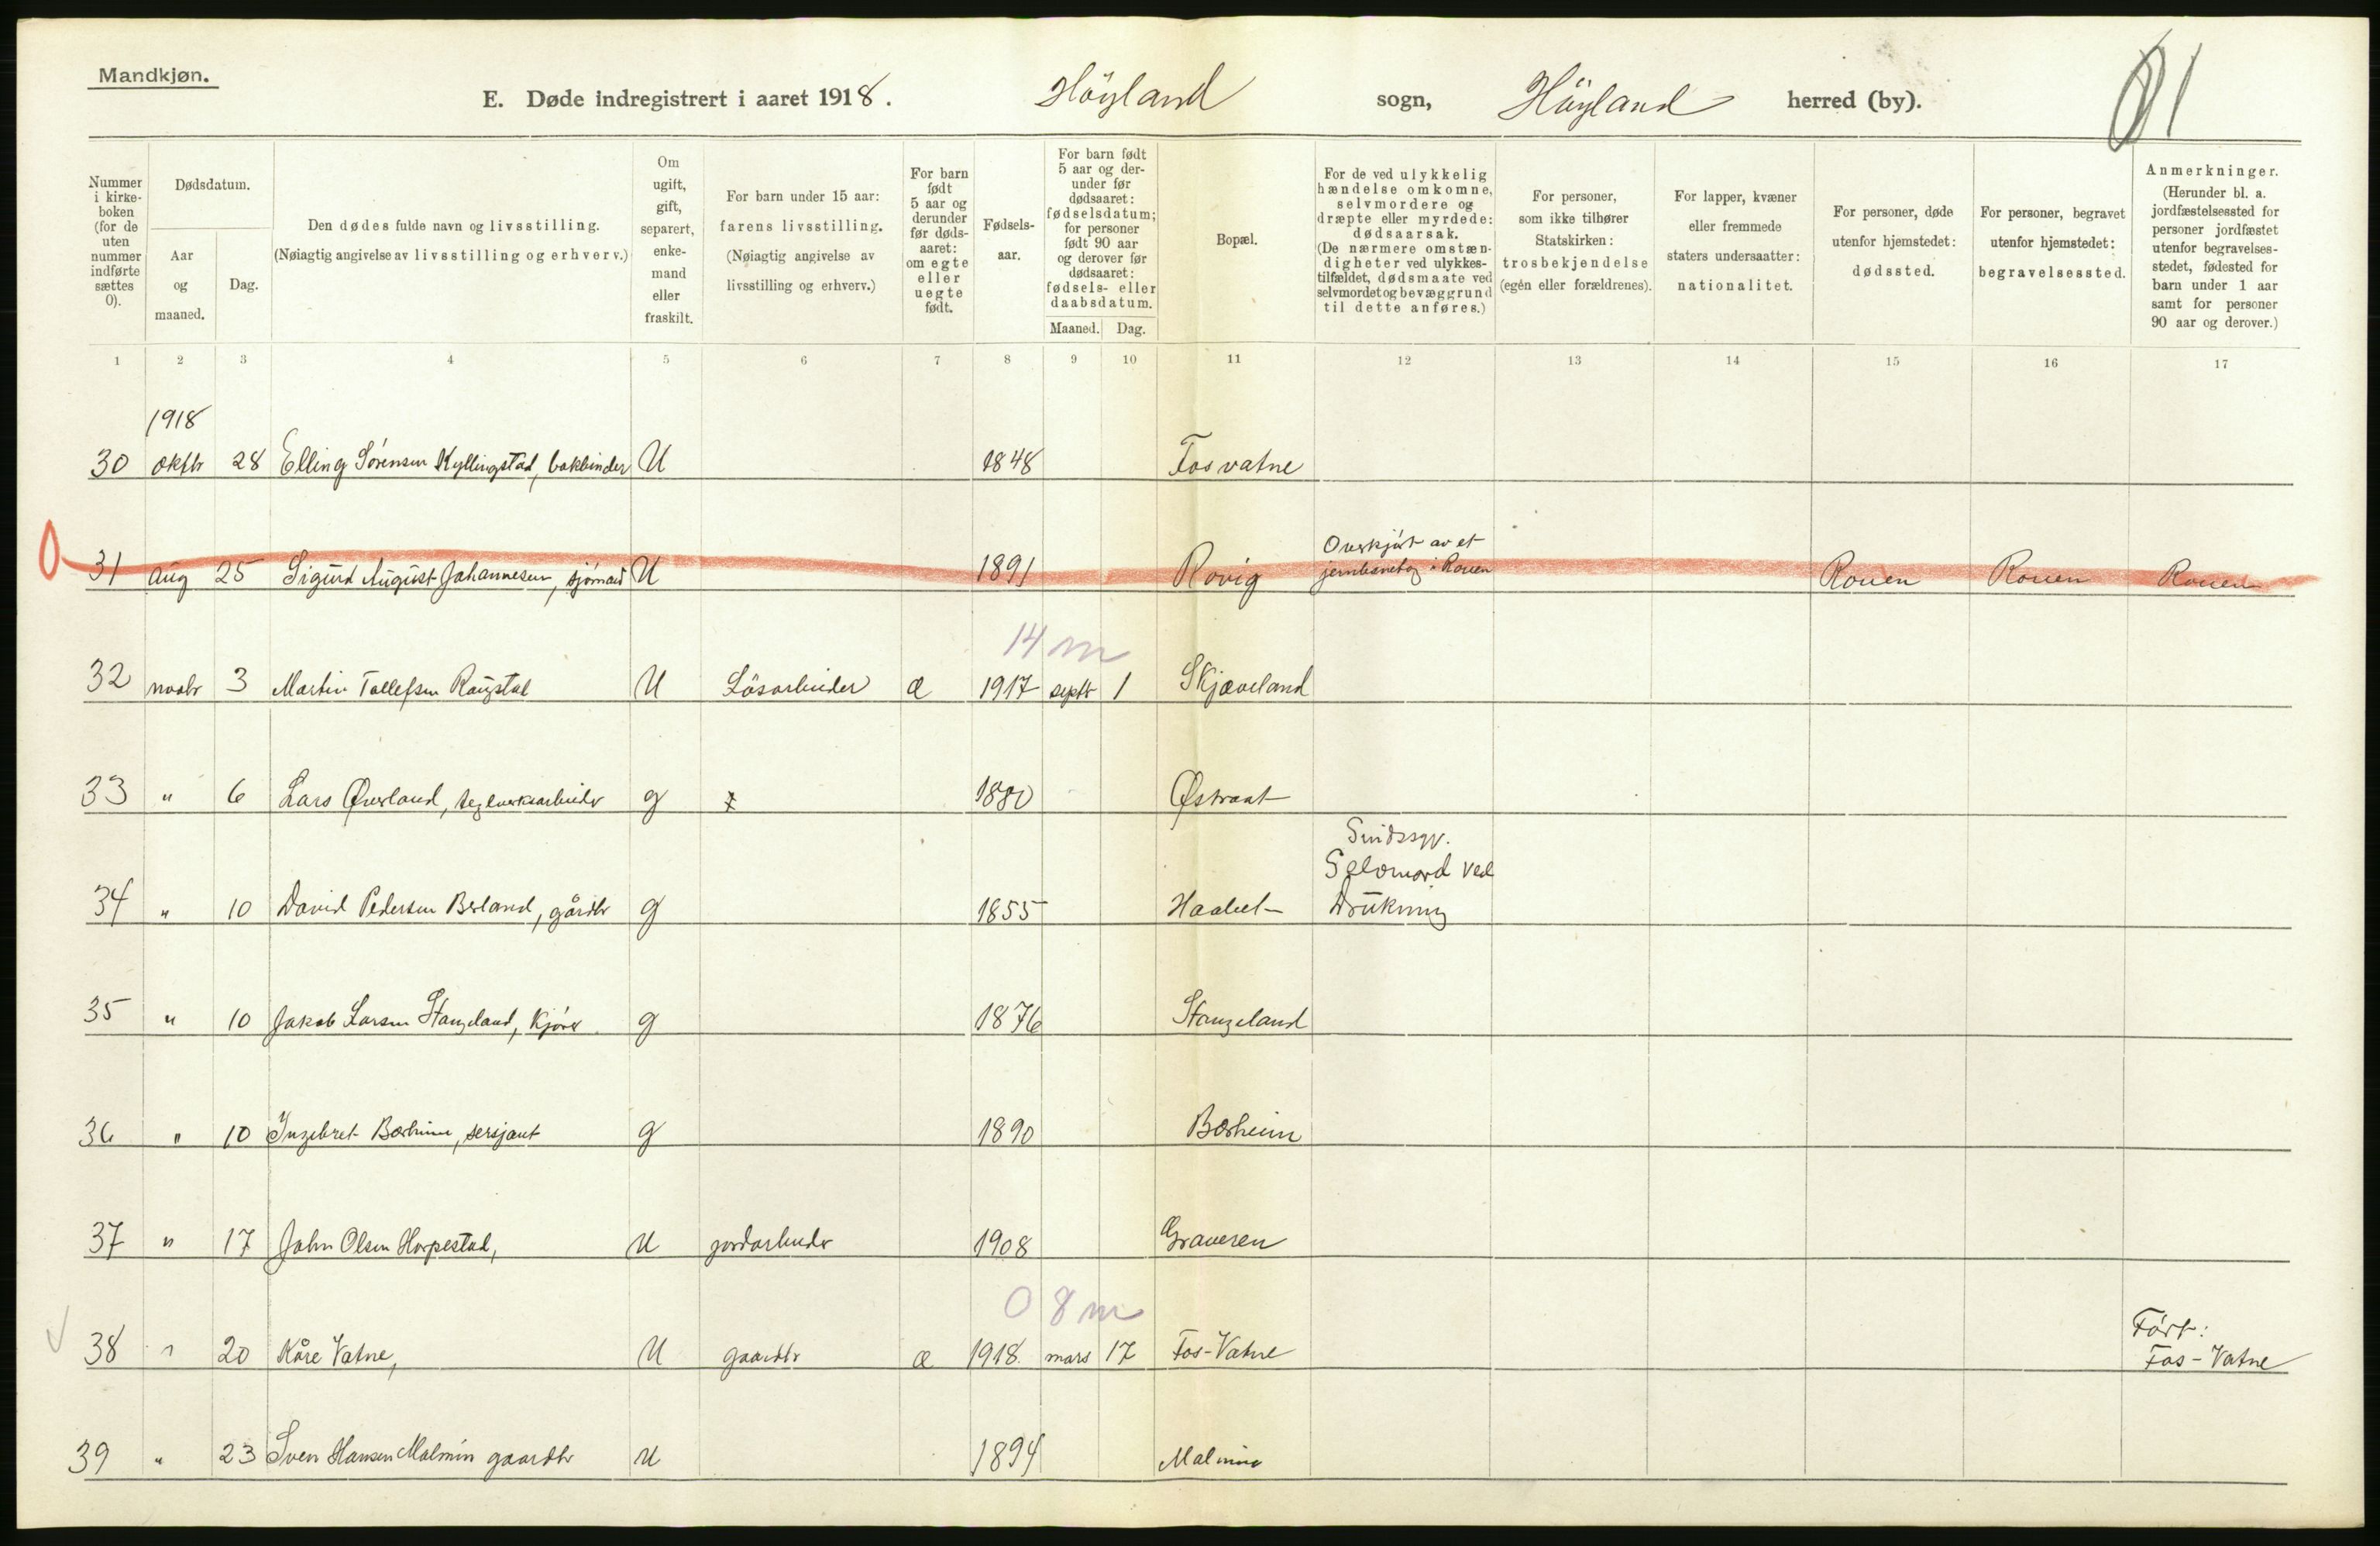 Mandkjøn.
E. Døde indregistrert i aaret 1918. Höyland sogn, Höyland herred (by).
Nummer i kirke-boken (for de uten nummer indførte sættes 0).
Dødsdatum.
Aar og maaned.
Dag.
Den dødes fulde navn og livsstilling.
(Nøiagtig angivelse av livsstilling og erhverv.)
Om ugift, gift, separert, enke-mand eller fraskilt.
For barn under 15 aar:
farens livsstilling.
(Nøiagtig angivelse av livsstilling og erhverv.)
For barn født 5 aar og derunder før døds-aaret: om egte eller uegte født.
Fødsels-aar.
For barn født 5 aar og der-under før dødsaaret: fødselsdatum; for personer født 90 aar og derover før dødsaaret: fødsels- eller daabsdatum.
Maaned. Dag.
Bopæl.
For de ved ulykkelig hændelse omkomne, selvmordere og dræpte eller myrdede: dødsaarsak.
(De nærmere omstæn-digheter ved ulykkes-tilfældet, dødsmaate ved selvmordet og bevæggrund til dette anføres.)
For personer, som ikke tilhører Statskirken: trosbekjendelse (egen eller forældrenes).
For lapper, kvæner eller fremmede staters undersaatter: nationalitet.
For personer, døde utenfor hjemstedet: dødssted.
For personer, begravet utenfor hjemstedet: begravelsessted.
Anmerkninger.
(Herunder bl. a. jordfæstelsessted for personer jordfæstet utenfor begravelses-stedet, fødested for barn under 1 aar samt for personer 90 aar og derover.)
1 2 3 4 5 6 7 8 9 10 11 12 13 14 15 16 17
1918
30 oktbr 28 Elling Sörensen Kyllingstad, bokbinder U 1848 Fosvatne
Overkjört av et
31 aug 25 Sigurd August Johannesen, sjömand U 1891 Rovig jernbanetog i Rouen Rouen Rouen Rouen
14 m
32 novbr 3 Martin Tollefsen Raugstad U Lösarbeider æ 1917 septbr 1 Skjæveland
33 " 6 Lars Øverland, teglverksarbeider g 1880 Østraat
Sindssyg.
Selvmord ved
34 " 10 David Pedersen Berland, gårdbr g 1855 Haabet Drukning
35 " 10 Jakob Larsen Stangeland, kjörer g 1876 Stangeland
36 " 10 Ingebret Bærheim, sersjant g 1890 Bærheim
37 " 17 John Olsen Horpestad, U jordarbeider 1908 Graveren
0 8 m
Födt:
38 " 20 Kåre Vatne, U gaardbr æ 1918 mars 17 Fos-Vatne Fos-Vatne
39 " 23 Sven Hansen Malmin gaardbr U 1894 Malmin